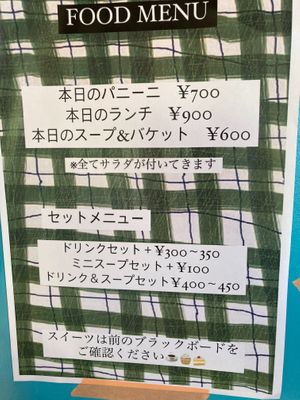 FOOD MENU
本日のパニーニ ¥700
本日のランチ ¥900
本日のスープ&バケット ¥600
※全てサラダが付いてきます
セットメニュー
ドリンクセット+¥300~350
ミニスープセット+¥100
ドリンク&スープセット¥400~450
スイーツは前のブラックボードを
ご確認ください☕🧁🍰